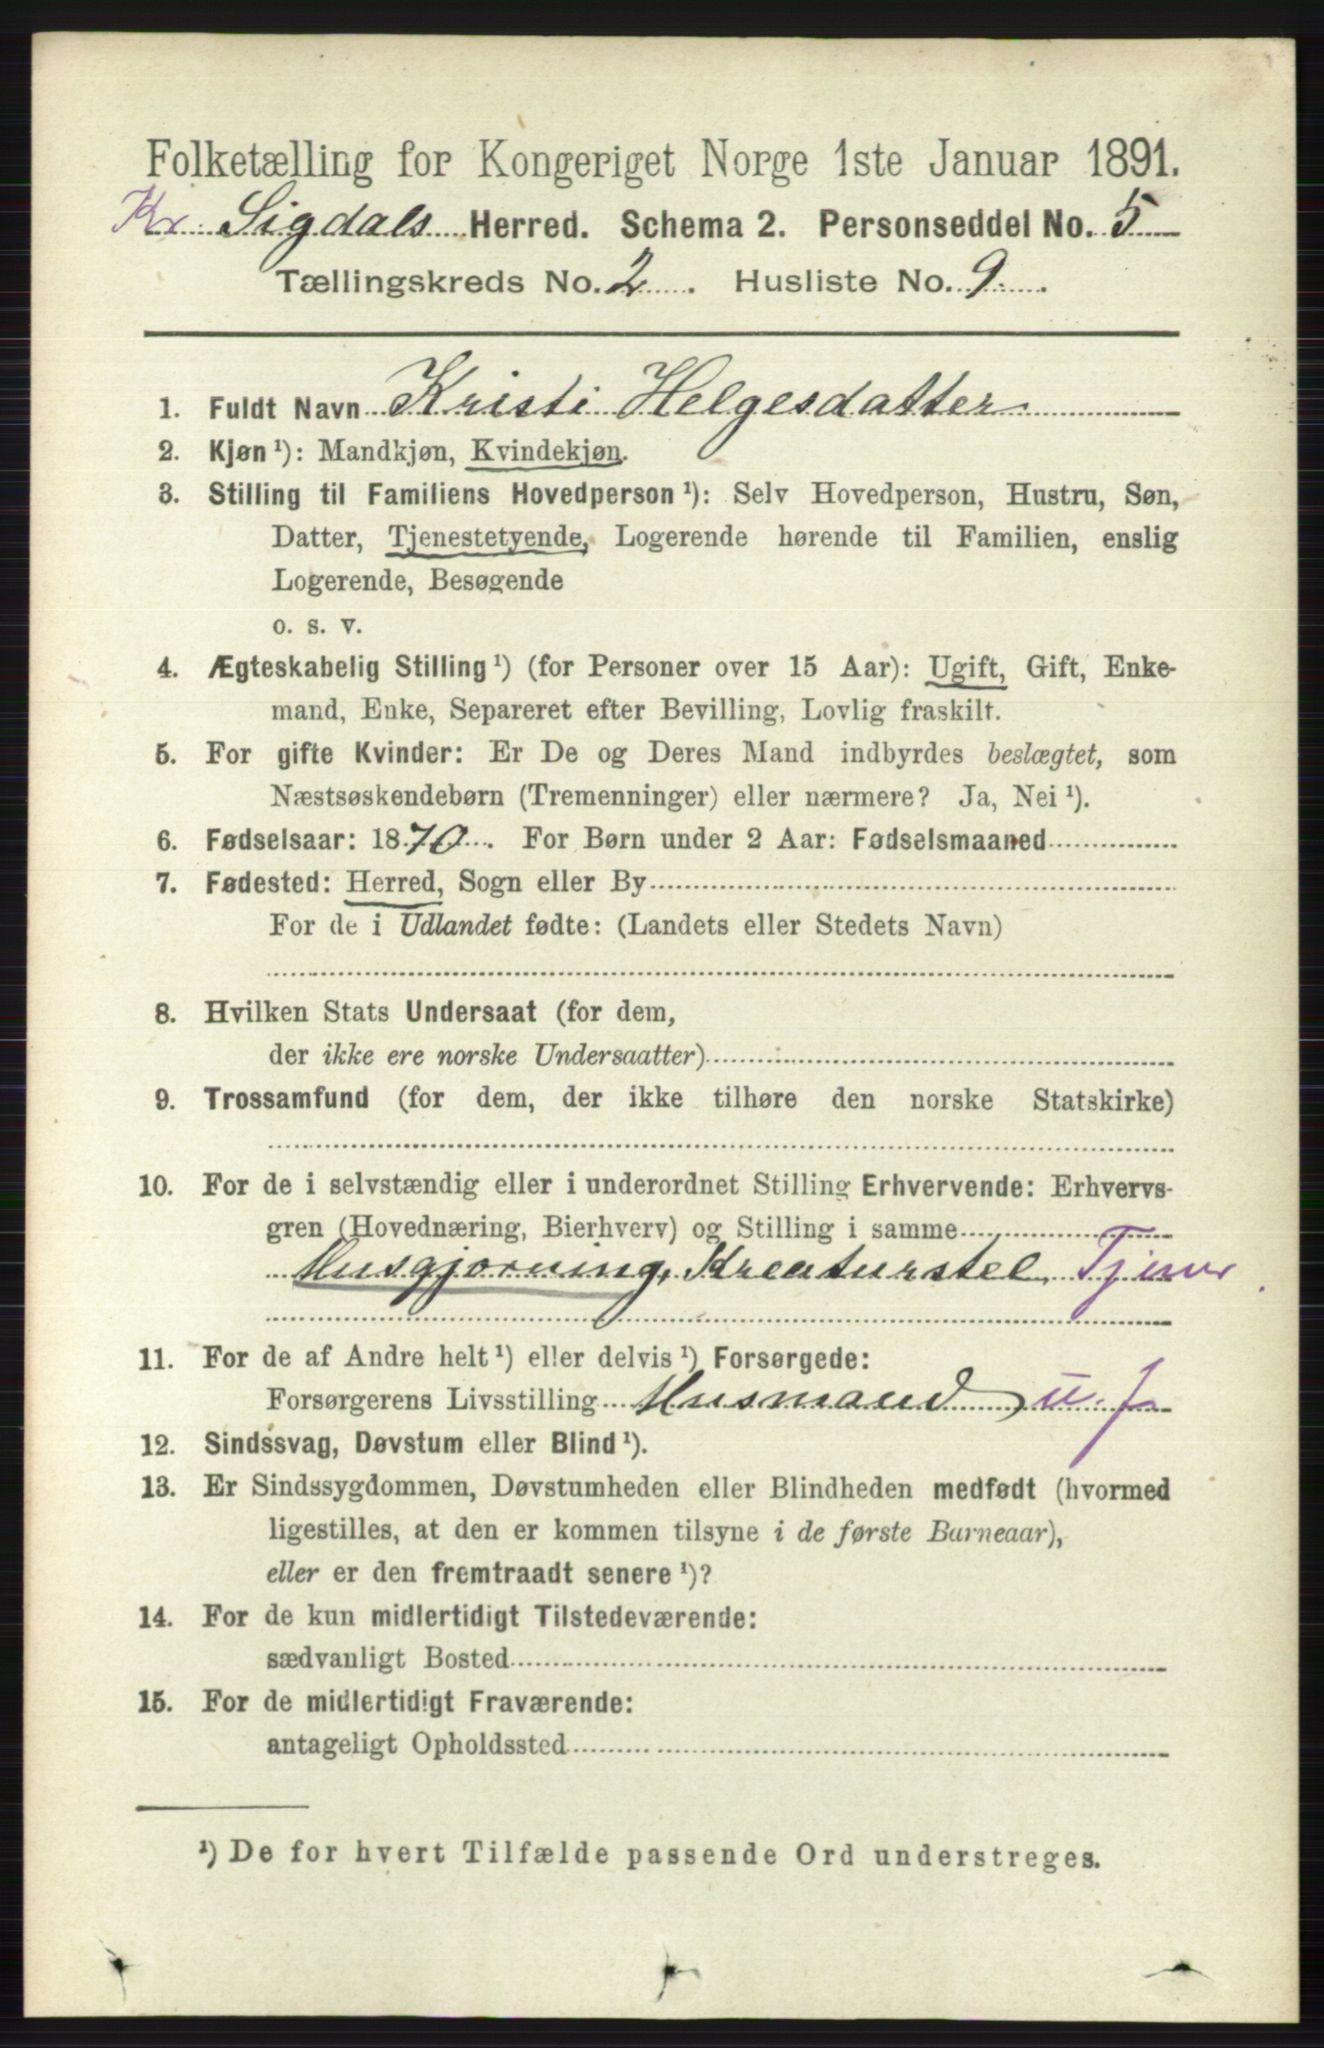 Folketælling for Kongeriget Norge 1ste Januar 1891.
Kr. Sigdals Herred. Schema 2. Personseddel No. 5
Tællingskreds No. 2. Husliste No. 9.
1. Fuldt Navn Kristi Helgesdatter
2. Kjøn¹): Mandkjøn, Kvindekjøn.
3. Stilling til Familiens Hovedperson¹): Selv Hovedperson, Hustru, Søn,
Datter, Tjenestetyende, Logerende hørende til Familien, enslig
Logerende, Besøgende
o. s. v.
4. Ægteskabelig Stilling¹) (for Personer over 15 Aar): Ugift, Gift, Enke-
mand, Enke, Separeret efter Bevilling, Lovlig fraskilt.
5. For gifte Kvinder: Er De og Deres Mand indbyrdes beslægtet, som
Næstsøskendebørn (Tremenninger) eller nærmere? Ja, Nei¹).
6. Fødselsaar: 1870. For Børn under 2 Aar: Fødselsmaaned
7. Fødested: Herred, Sogn eller By
For de i Udlandet fødte: (Landets eller Stedets Navn)
8. Hvilken Stats Undersaat (for dem,
der ikke ere norske Undersaatter)
9. Trossamfund (for dem, der ikke tilhøre den norske Statskirke)
10. For de i selvstændig eller i underordnet Stilling Erhvervende: Erhvervs-
gren (Hovednæring, Bierhverv) og Stilling i samme
Husgjorning, Kreaturstel, Tjener
11. For de af Andre helt¹) eller delvis¹) Forsørgede:
Forsørgerens Livsstilling Husmand u. J.
12. Sindssvag, Døvstum eller Blind¹).
13. Er Sindssygdommen, Døvstumheden eller Blindheden medfødt (hvormed
ligestilles, at den er kommen tilsyne i de første Barneaar),
eller er den fremtraadt senere¹)?
14. For de kun midlertidigt Tilstedeværende:
sædvanligt Bosted
15. For de midlertidigt Fraværende:
antageligt Opholdssted
¹) De for hvert Tilfælde passende Ord understreges.